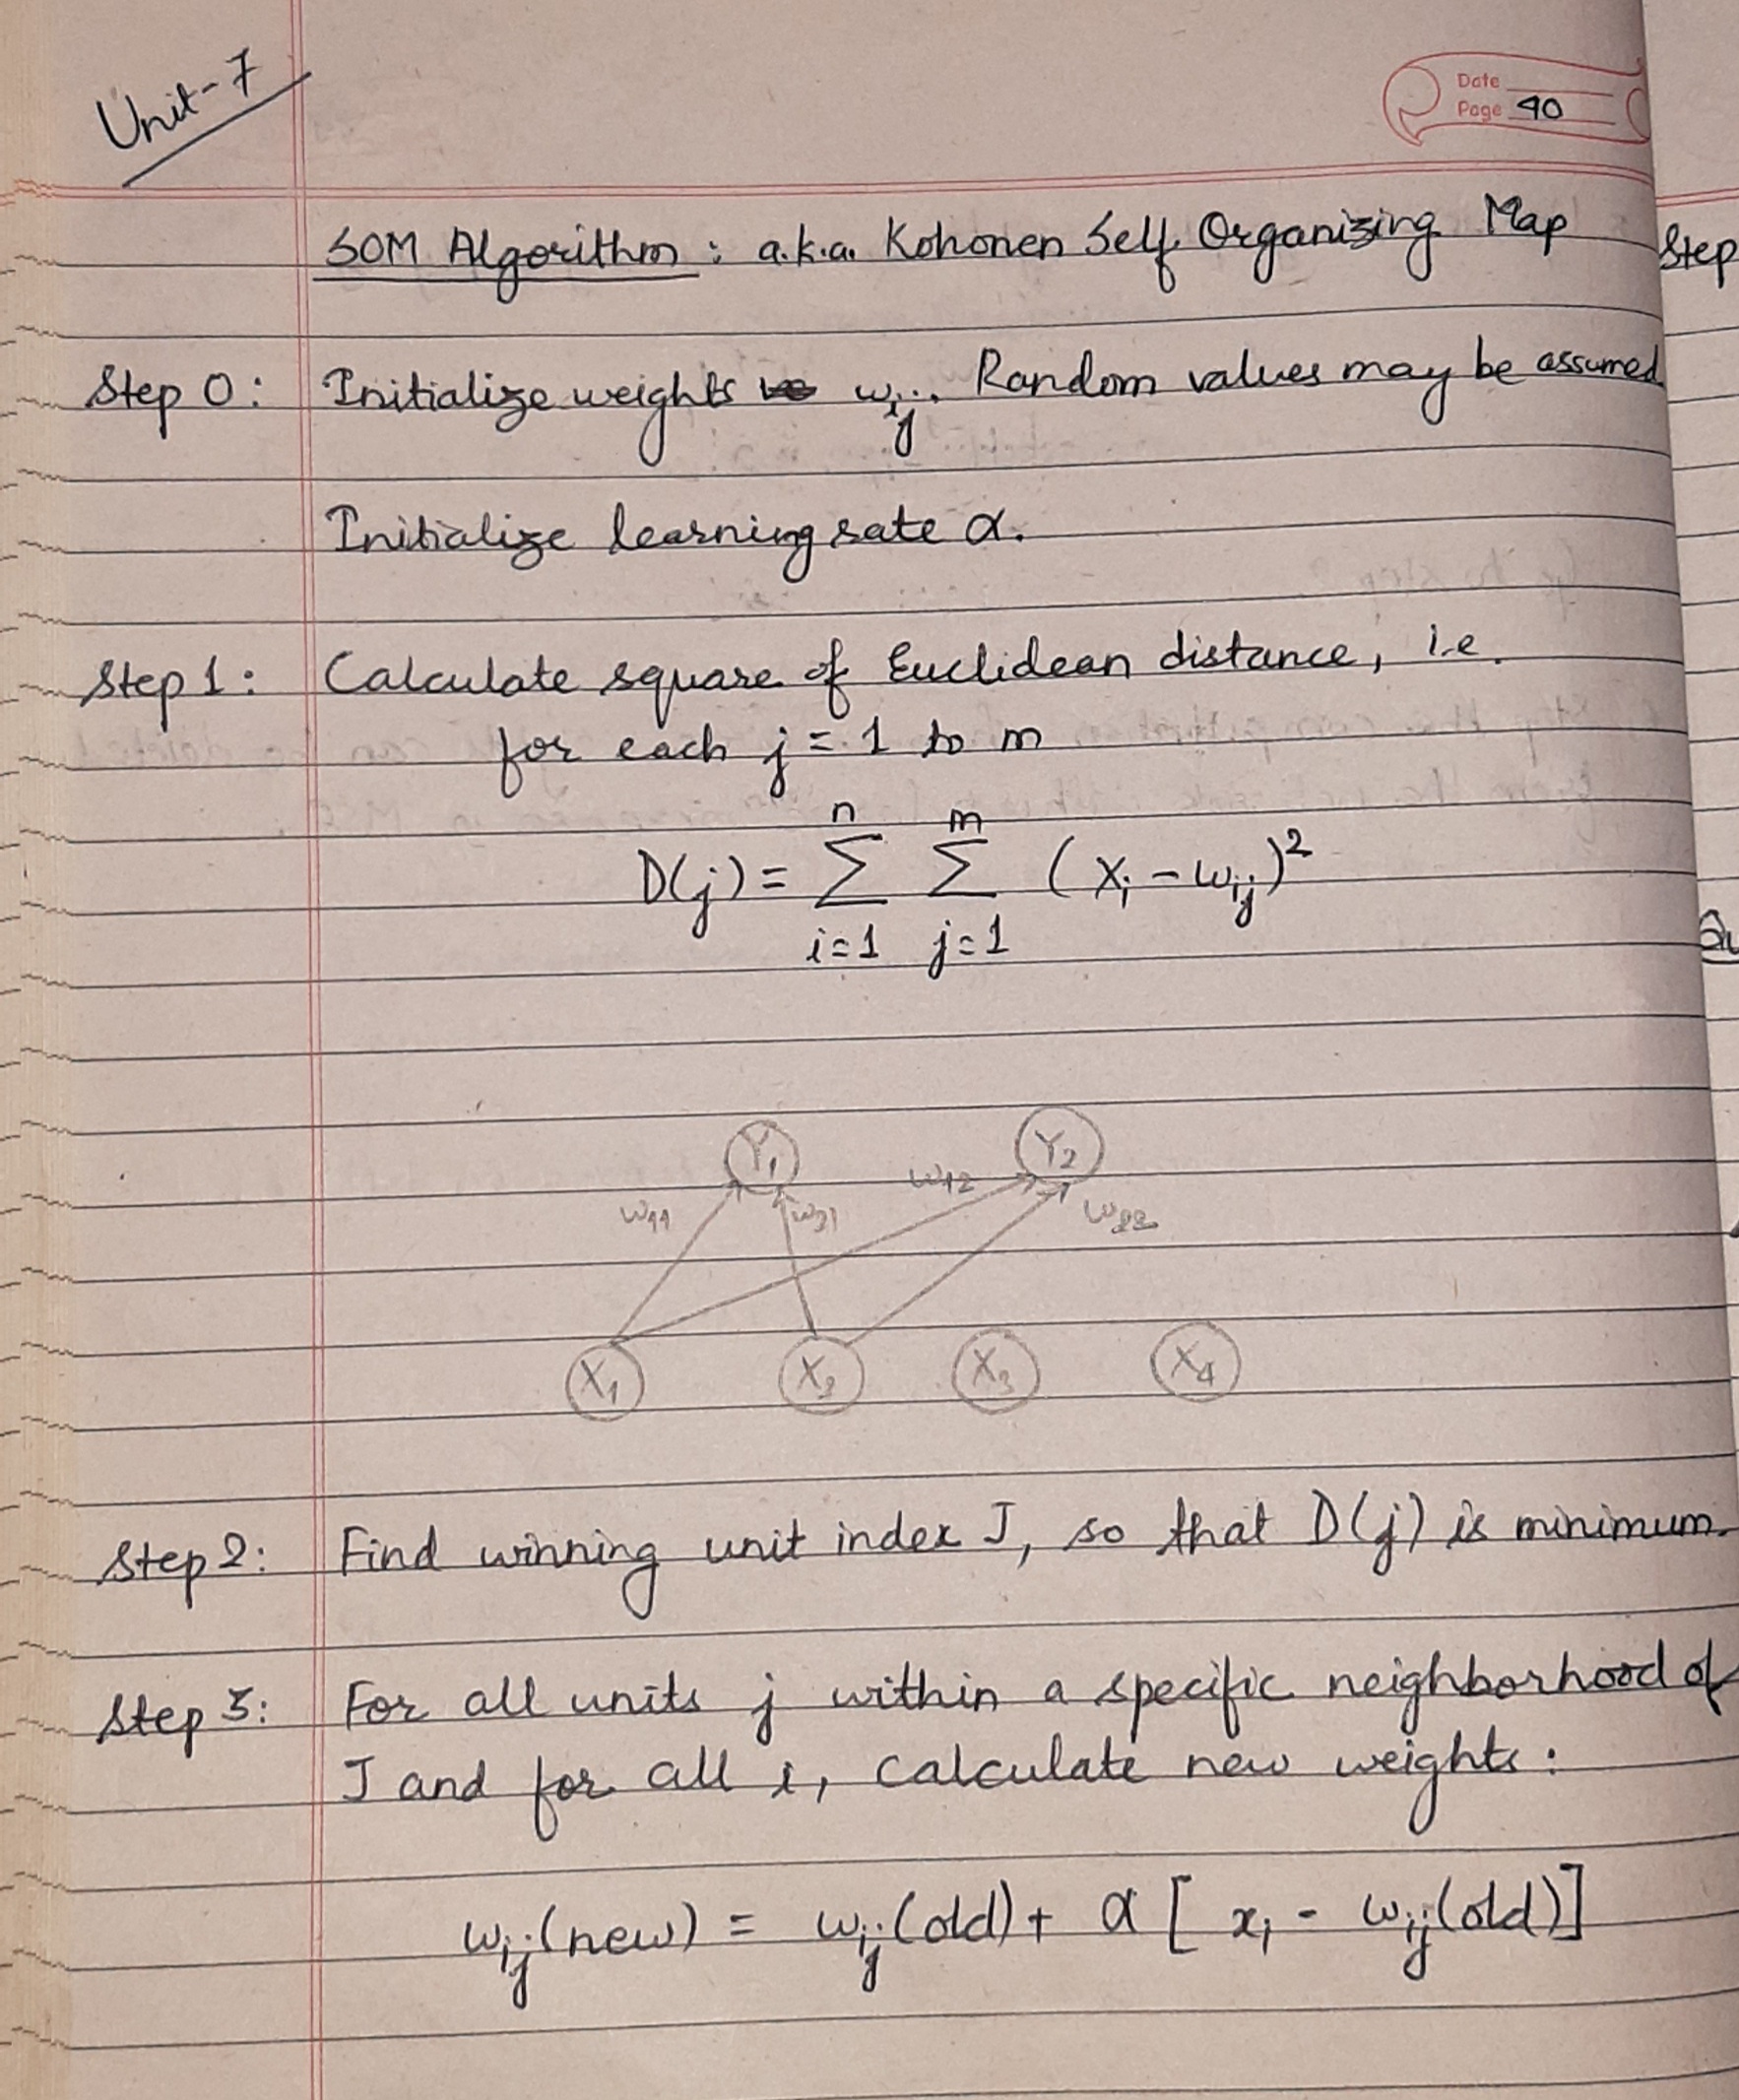 Unit-7
Date
Page 40
SOM Algorithm : a.k.a. Kohonen Self Organizing Map
Step 0: Initialize weights wij. Random values may be assumed
Initialize learning rate α.
Step 1: Calculate square of Euclidean distance, i.e.
for each j = 1 to m
D(j) = Σ(i=1 to n) Σ(j=1 to m) (xi - wij)²
Y1 Y2
w11 w21 w12 w22
X1 X2 X3 X4
Step 2: Find winning unit index J, so that D(j) is minimum.
Step 3: For all units j within a specific neighborhood of
J and for all i, calculate new weights:
wij(new) = wij(old) + α [ xi - wij(old)]
Step